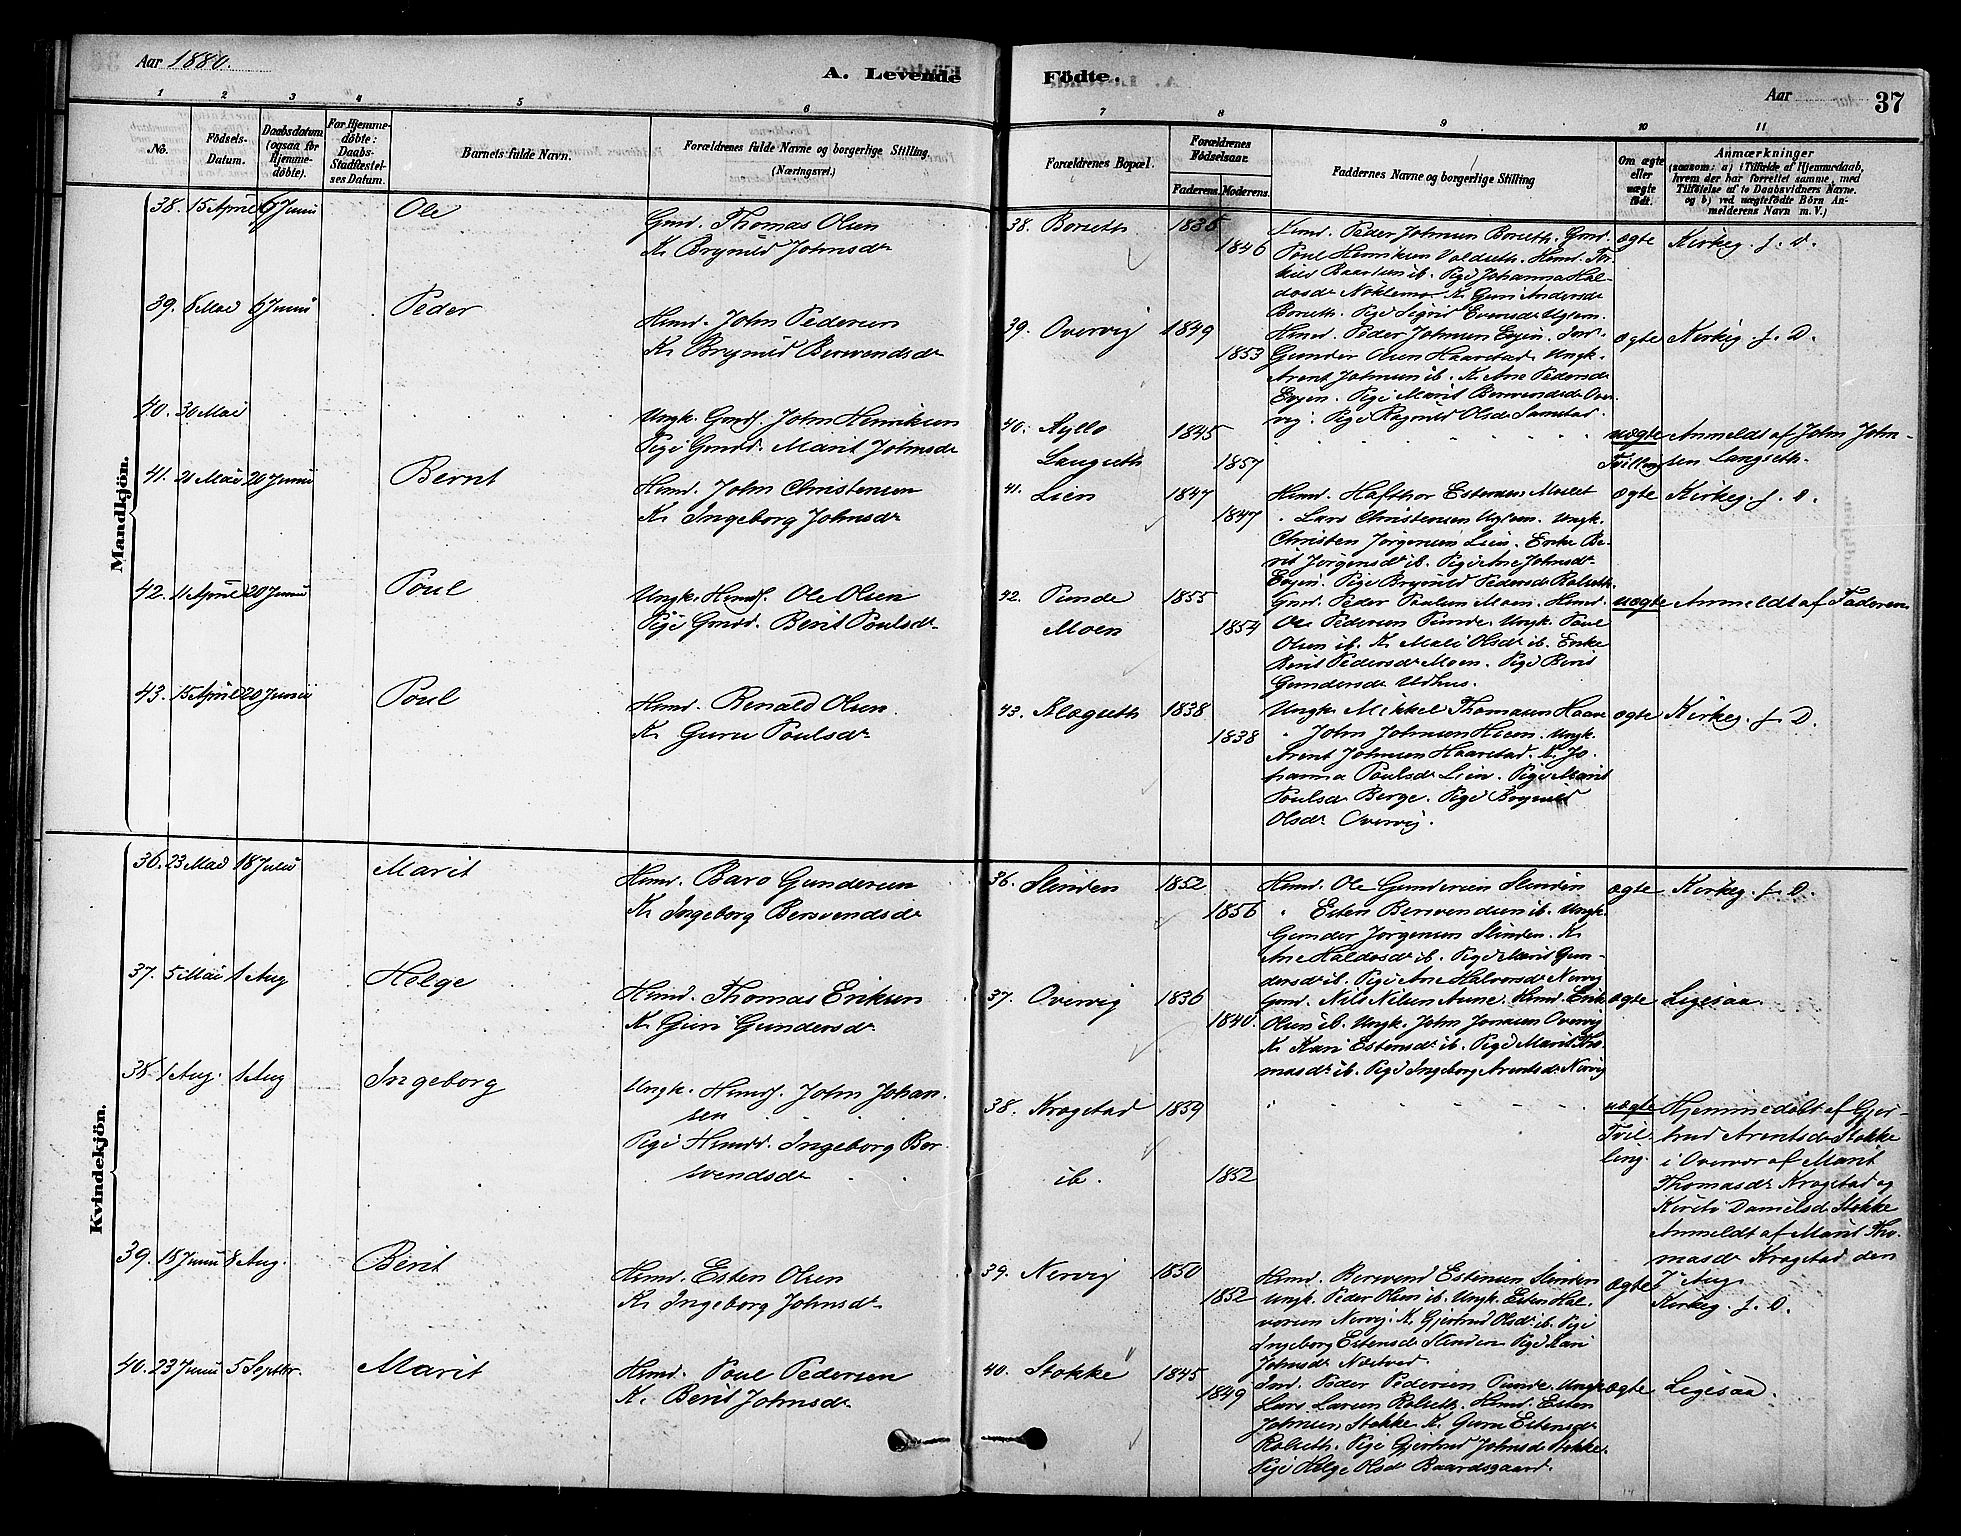 Aar 1880.
A. Levende Födte.
Aar 37
1 2 3 4 5 6 7 8 9 10 11
No.
Födsels-Datum.
Daabsdatum (ogsaa for Hjemme-döbte).
For Hjemme-döbte: Daabs-Stadfæstel-ses Datum.
Barnets fulde Navn.
Forældrenes fulde Navne og borgerlige Stilling (Næringsvei.)
Forældrenes Bopæl.
Forældrenes Fødselsaar.
Faderens. Moderens.
Faddernes Navne og borgerlige Stilling
Om ægte eller uægte födt.
Anmærkninger
(saasom: a) i Tilfælde af Hjemmedaab, hvem der har forrettet samme, med Tilföielse af to Daabsvidners Navne. og b) ved uægtefödte Börn An-melderens Navn m. V.)
Mandkjön.
38. 15 April 6 Juni Ole
Gmd. Thomas Olsen
K. Brynild Johnsdr
38. Borseth 1836 1846
Hmd. Peder Johnsen Borseth. Gmd.
Poul Henriksen Voldseth. Hmd. Tor-
kild Baardsen ib. Pige Johanna Hal-
dosdr Nöklemo K. Guri Andersdr
Borseth. Pige Sigrid Evensdr Uglem.
ægte Kirkeg. f. D.
39. 8 Mai 6 Juni Peder
Hmd. John Pedersen
K. Brynild Bersvendsdr
39. Overvig 1849 1853
Hmd. Peder Johnsen Evjen. Ind.
Gunder Olsen Haarstad. Ungk.
Arent Johnsen ib. K. Ane Pedersdr
Evjen. Pige Marit Bersvendsdr Over-
vig. Pige Ragnild Olsdr Samstad.
ægte Kirkeg. f. D.
40. 30 Mai
Ungk. Gmds. John Henriksen
Pige Gmdd. Marit Johnsdr
40. Kyllo 1845
Langseth 1857
uægte Tvilling
Anmeldt af John John-
sen Langseth.
41. 21 Mai 20 Juni Bernt
Hmd. John Christensen
K. Ingeborg Johnsdr
41. Lien 1847 1847
Hmd. Hafthor Estensen Mulet
" Lars Christensen Uglem. Ungk.
Christen Jørgensen Lien. Enke Be-
rit Jørgensdr ib. Pige Ane Johnsdr
Evjen. Pige Brynild Pedersdr Rolseth.
ægte Kirkeg. f. D.
42. 11 April 20 Juni Poul
Ungk. Hmds. Ole Olsen
Pige Gmdd. Berit Poulsdr
42. Punde 1855
Moen 1854
Gmd. Peder Poulsen Moen. Hmd.
Ole Pedersen Punde. Ungk. Poul
Olsen ib. K. Mali Olsdr ib. Enke
Berit Pedersdr Moen. Pige Berit
Gundersdr Udhus.
uægte Anmeldt af Faderen
43. 15 April 20 Juni Poul
Hmd. Renald Olsen
K. Guru Poulsdr
43. Klægseth 1838 1838
Ungk. Mikkel Thomasen Haave
" John Johnsen Hiem. Ungk.
Arent Johnsen Haarstad. K. Jo-
hanna Poulsdr Lien. Pige Marit
Poulsdr Berge. Pige Brynild
Olsdr Overvig.
ægte Kirkeg. f. D.
Kvindekjön.
36. 23 Mai 18 Juli Marit
Hmd. Baro Gundersen
K. Ingeborg Bersvendsdr
36. Slinden 1852 1856
Hmd. Ole Gundersen Slinden
" Esten Bersvendsen ib. Ungk.
Gunder Jørgensen Slinden. K.
Ane Haldosdr ib. Pige Marit Gun-
dersdr ib. Pige Ane Halvorsdr Nervig
ægte Kirkeg. f. D.
37. 5 Mai 1 Aug Helge
Hmd. Thomas Eriksen
K. Guri Gundersdr
37. Overvig 1836 1840.
Gmd. Nils Nilsen Aune. Hmd. Erik
Olsen ib. Ungk. John Jonsen Overvig
K. Kari Estensdr ib. Pige Marit Tho-
masdr ib. Pige Ingeborg Arentsdr Nervig
ægte Ligesaa.
38. 1 Aug. 1 Aug Ingeborg
Ungk. Hmds. John Johan-
sen
Pige Hmdd. Ingeborg Ber-
svendsdr
38. Krogstad 1859
ib. 1852
uægte Tvil-
ling.
Hjemmedøbt af Gjer-
trud Arentsdr Stokke
i Overvær af Marit
Thomasdr Krogstad og
Kirsti Danielsdr Stokke
Anmeldt af Marit Tho-
masdr Krogstad den
7 Aug.
39. 18 Juni 8 Aug. Berit
Hmd. Esten Olsen
K. Ingeborg Johnsdr
39. Nervig 1850 1852
Hmd. Bersvend Estensen Slinden
Ungk. Peder Olsen ib. Ungk. Esten Hal-
vorsen Nervig. K. Gjertrud Olsdr ib. Pige
Ingeborg Estensdr Slinden Pige Kari
Johnsdr Næstved.
ægte Kirkeg. f. D.
40. 23 Juni 5 Septbr. Marit
Hmd. Poul Pedersen
K. Berit Johnsdr
40. Stokke 1845 1849
Ind. Peder Pedersen Punde. Ungk.
Lars Larsen Rolseth. Hmd. Esten
Johnsen Stokke K. Guru Estensdr
Rolseth. Pige Gjertrud Johnsdr Stokke.
Pige Helge Olsdr Baardsgaard.
ægte Ligesaa.